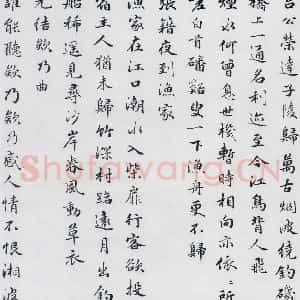 吕公榮達子陵歸萬古烟波繞釣磯
橋上一通名利迹至今江鳥背人飛
煙水何曾息世機暫時相向亦依依所
嗟白首磻谿叟一下漁舟更不歸
張籍夜到漁家
漁家在江口潮水入柴扉行客欲投
宿主人猶未歸竹深村路遠月出釣
船稀遙見尋沙岸春風動草衣
元結欸乃曲
誰能聽欸乃欸乃感人情不恨湘波
Shufawang.CN